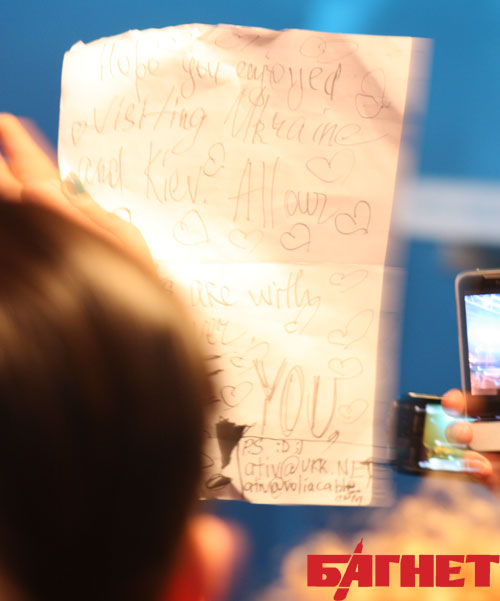 Hope you enjoyed
visiting Ukraine
and Kiev. All our
are with
YOU
P.S. DJ
ativ@UKR.NET
БАГНЕТ